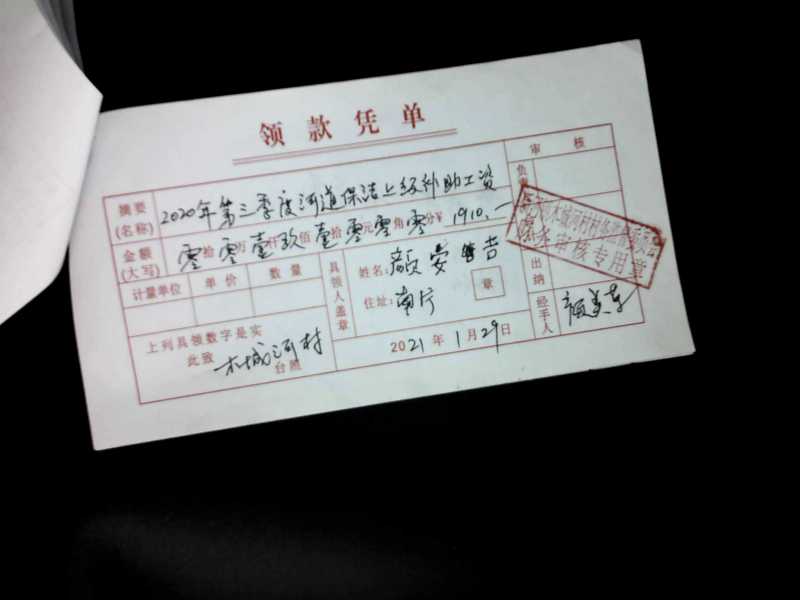 领款凭单
审核
摘要(名称) 2020年第三季度河道保洁上级补助工资
金额(大写) 零拾零万壹仟玖佰壹拾零元零角零分¥ 1910.-
计量单位 单价 数量
具领人盖章
姓名:颜安 吉
住址:南片
章
负责
出纳
经手人 颜美
务审核专用章
上列具领数字是实
此致 木城河村 台照
2021年1月29日